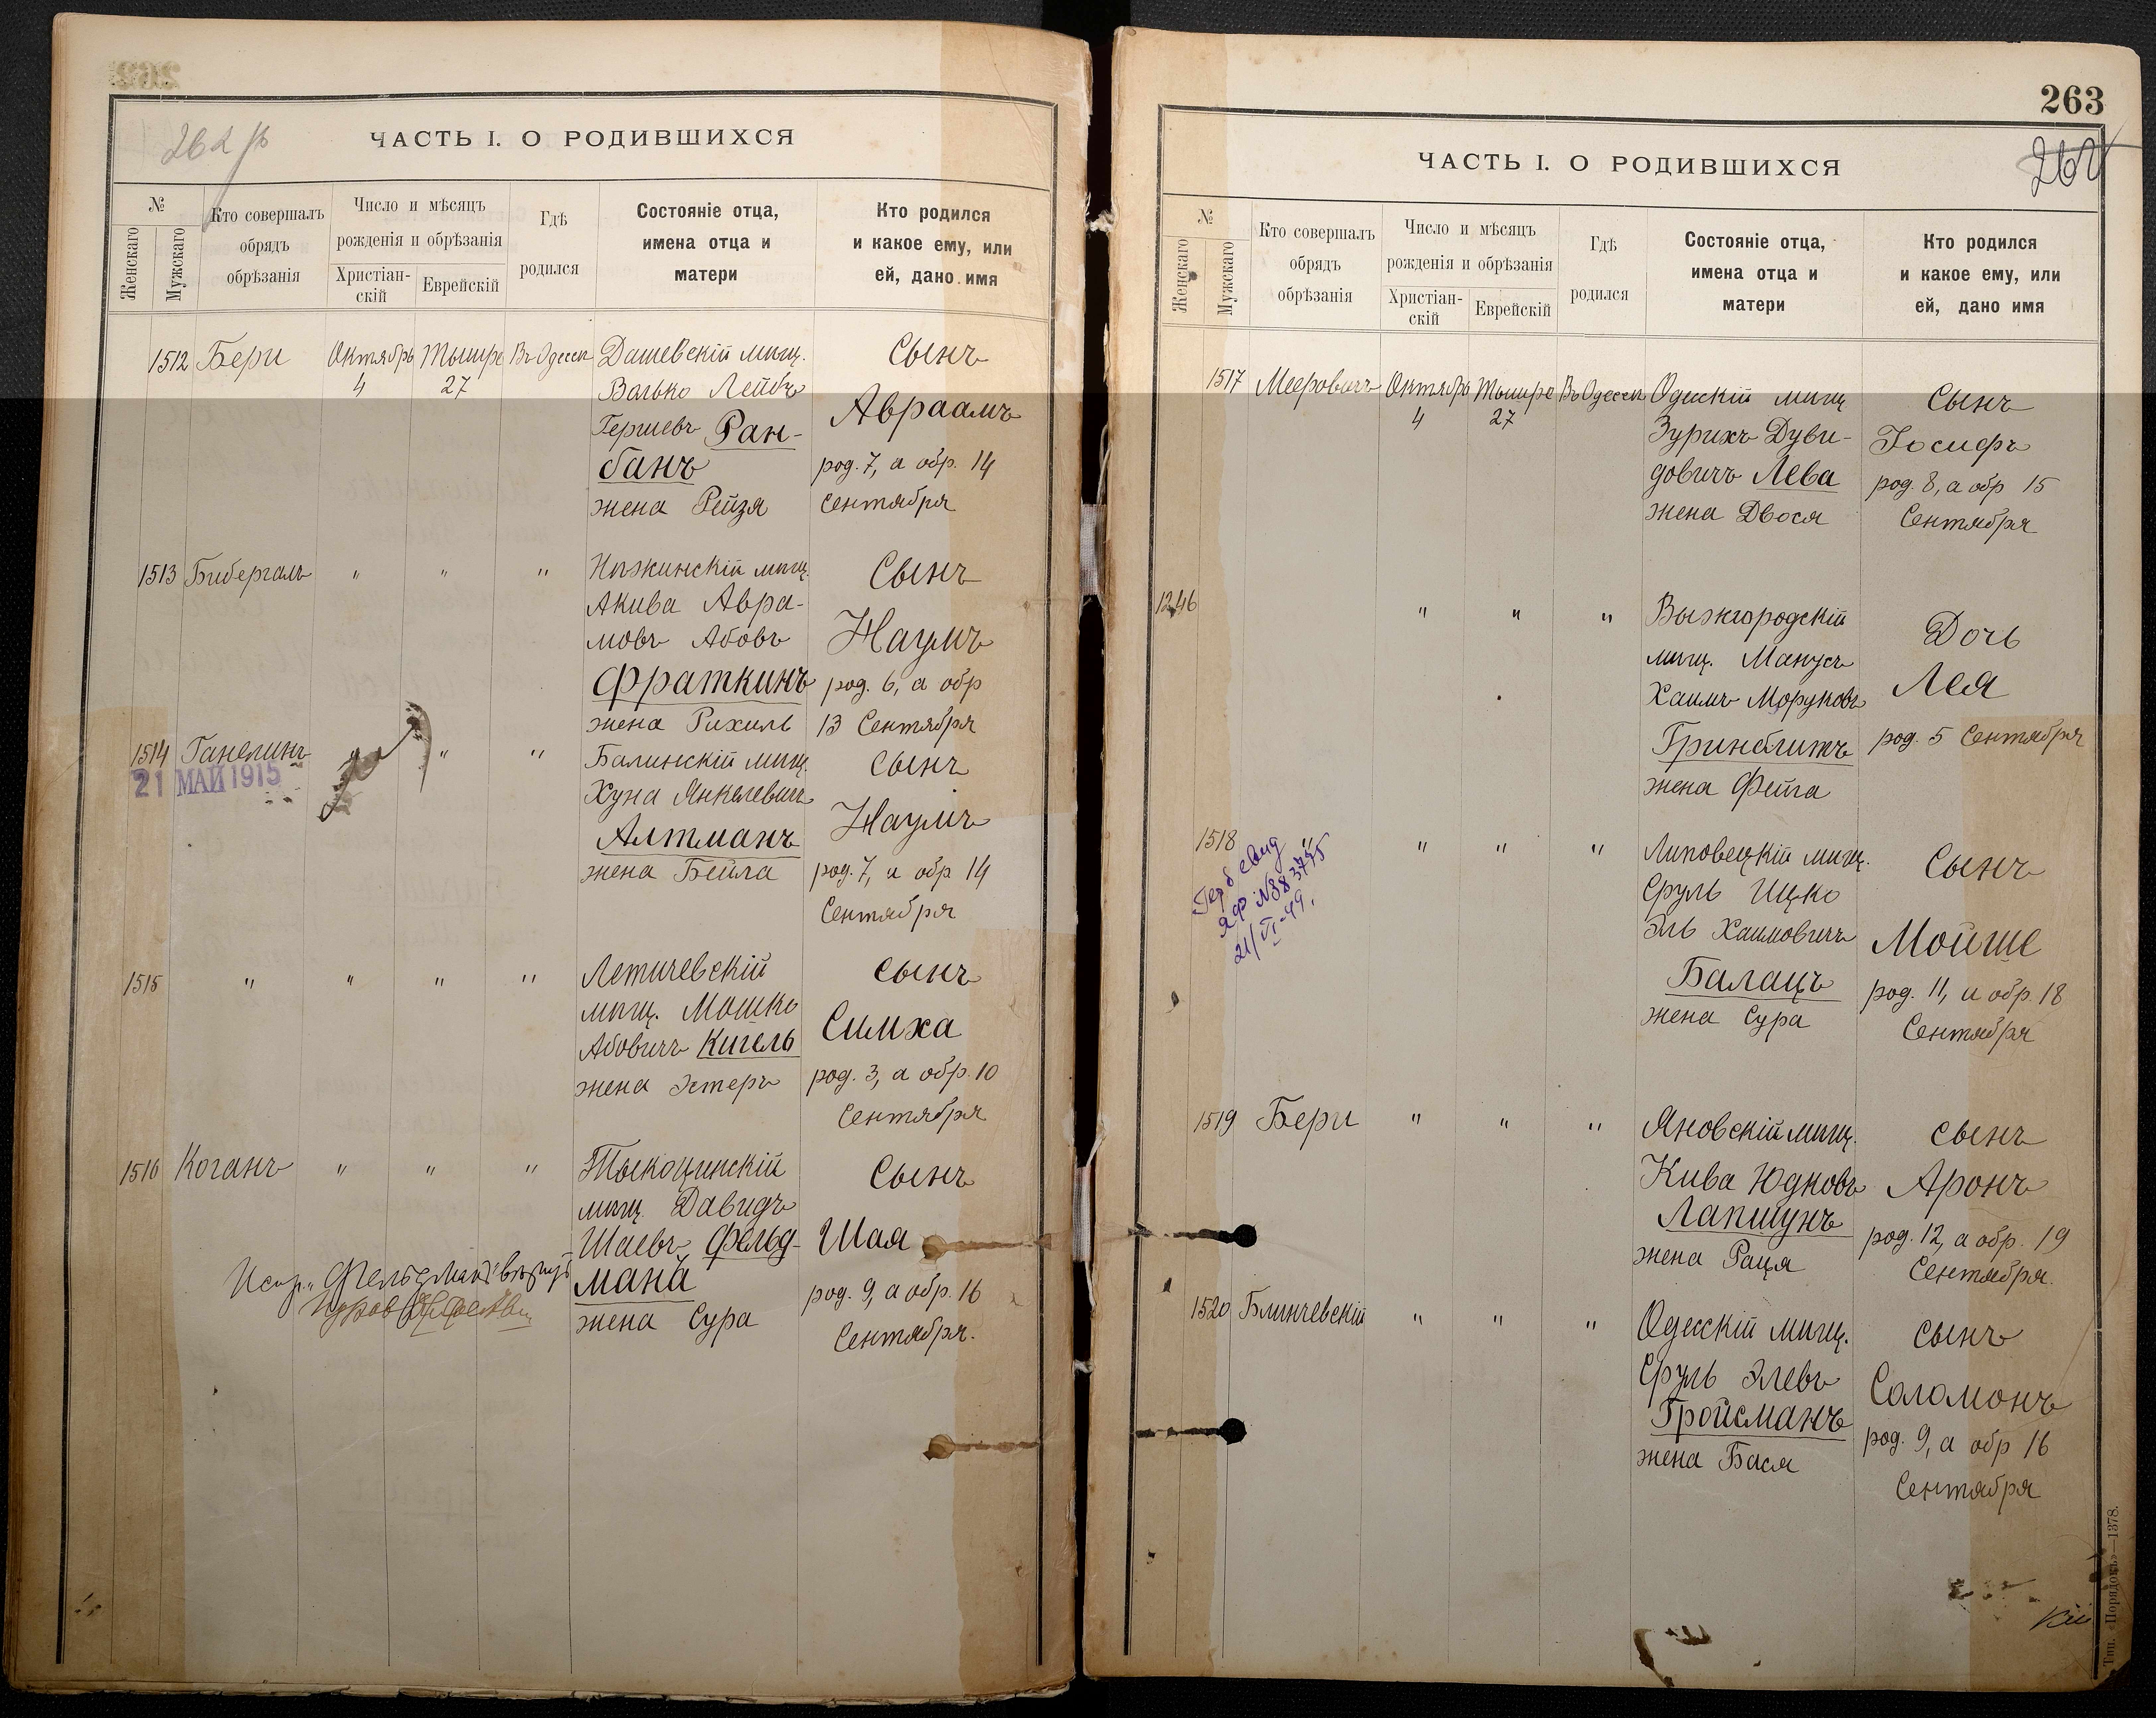 262 об
ЧАСТЬ I. О РОДИВШИХСЯ
№
Женскаго
Мужскаго
Кто совершалъ
обрядъ
обрѣзанія
Число и мѣсяцъ
рожденія и обрѣзанія
Христіан-
скій
Еврейскій
Гдѣ
родился
Состояніе отца,
имена отца и
матери
Кто родился
и какое ему, или
ей, дано имя
1512 Бери Октябрь 4 Тышре 27 Въ Одессѣ
Дашевскій мѣщ.
Волько Лейбъ
Гершевъ Ран-
банъ
жена Рейзя
Сынъ
Авраамъ
род. 7, а обр. 14
Сентября
1513 Бибергалъ " " "
Нѣжинскій мѣщ.
Акива Авра-
мовъ Абовъ
Фраткинъ
жена Рихиль
Сынъ
Наумъ
род. 6, а обр
13 Сентября
1514 Ганелинъ " " "
21 МАЙ 1915
Балинскій мѣщ.
Хуна Янкелевичъ
Алтманъ
жена Бейла
Сынъ
Наумъ
род. 7, а обр 14
Сентября
1515 " " " "
Летичевскій
мѣщ. Мошко
Абовичъ Кигель
жена Эстеръ
Сынъ
Симха
род. 3, а обр. 10
Сентября
1516 Коганъ " " "
Тыкоцинскій
мѣщ. Давидъ
Шаевъ Фельд-
манъ
жена Сура
Сынъ
Шая
род. 9, а обр. 16
Сентября.
Испр. "Фельдманъ" вѣрно
263
262
ЧАСТЬ I. О РОДИВШИХСЯ
№
Женскаго
Мужскаго
Кто совершалъ
обрядъ
обрѣзанія
Число и мѣсяцъ
рожденія и обрѣзанія
Христіан-
скій
Еврейскій
Гдѣ
родился
Состояніе отца,
имена отца и
матери
Кто родился
и какое ему, или
ей, дано имя
1517 Мееровичъ Октябрь 4 Тышре 27 Въ Одессѣ
Одесскій мѣщ
Зурихъ Дуви-
довичъ Лева
жена Двося
Сынъ
Іосифъ
род. 8, а обр 15
Сентября
1246 " " "
Вышгородскій
мѣщ. Манусъ
Хаимъ Моруковъ
Гринблитъ
жена Фейга
Дочь
Лея
род. 5 Сентября
1518 " " " "
21/VI-49.
Липовецкій мѣщ.
Сруль Ицко
Эль Хаимовичъ
Балацъ
жена Сура
Сынъ
Мойше
род. 11, а обр. 18
Сентября
1519 Бери " " "
Яновскій мѣщ.
Кива Юдковъ
Лапшунъ
жена Раця
Сынъ
Аронъ
род. 12, а обр. 19
Сентября.
1520 Блинчевскій " " "
Одесскій мѣщ.
Сруль Элевъ
Гройсманъ
жена Бася
Сынъ
Соломонъ
род. 9, а обр 16
Сентября
Тип. «Порядокъ»—1378.